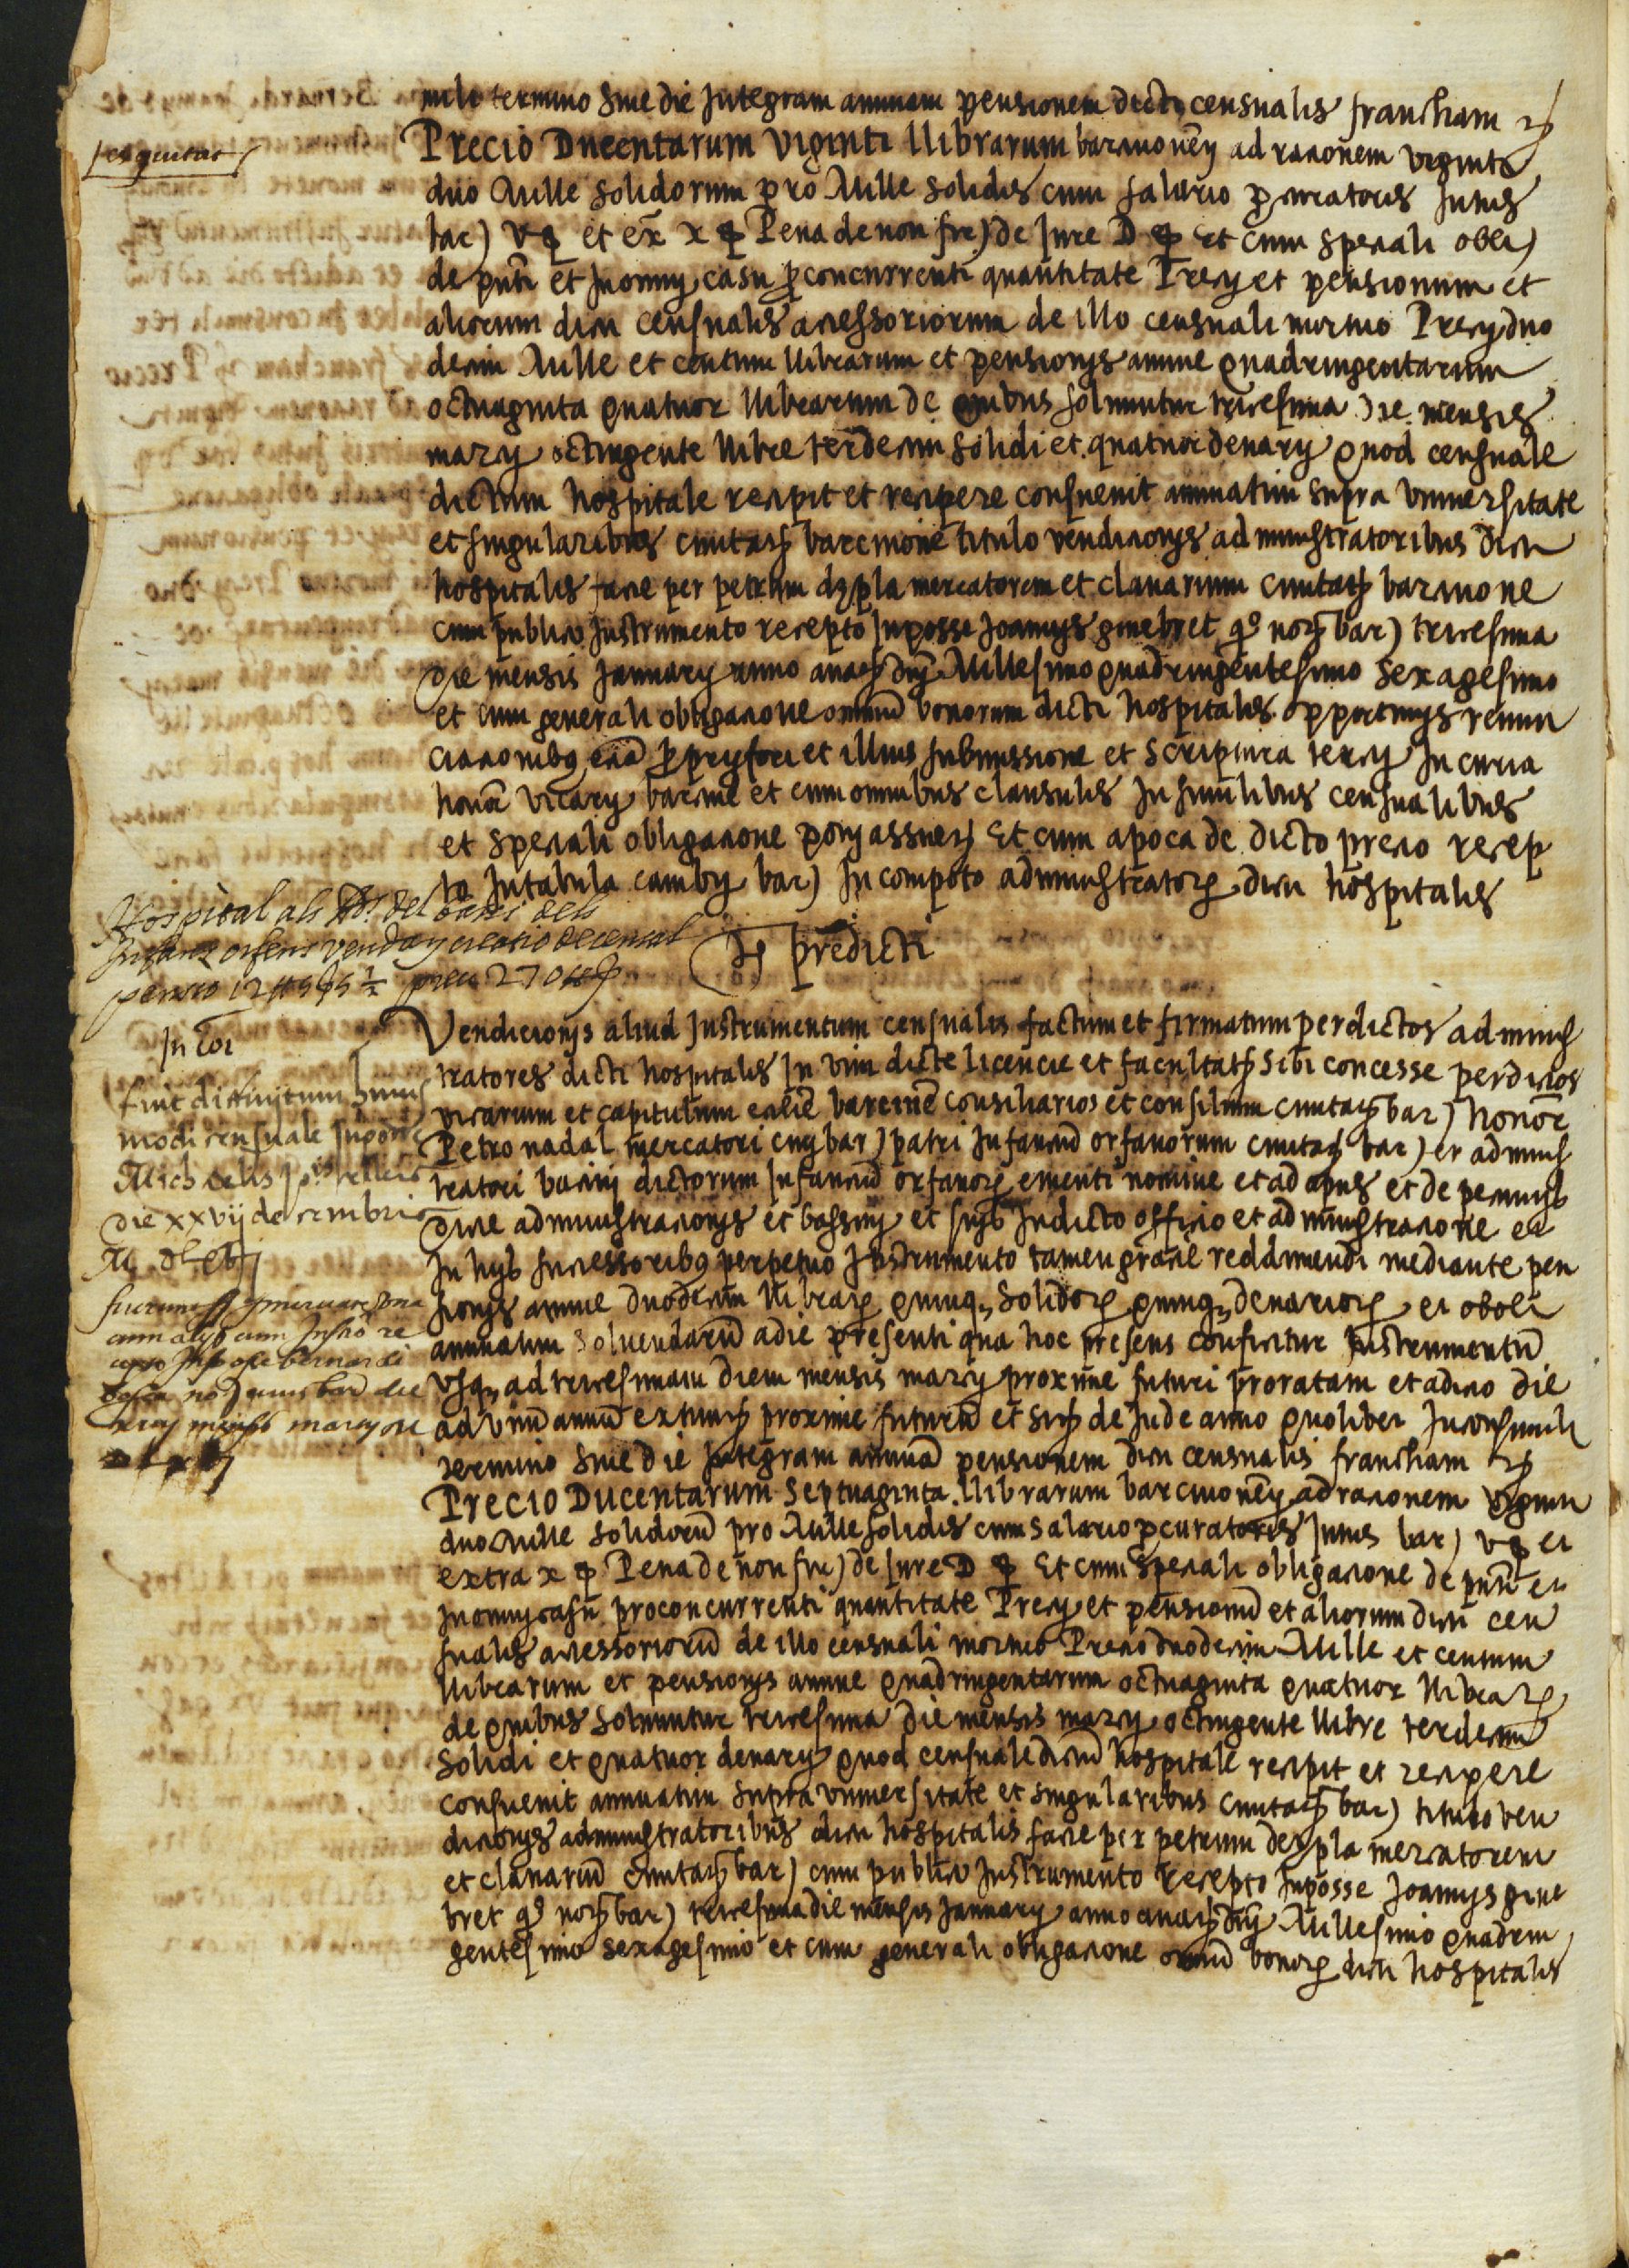 mili termino sive die Integram annuam pensionem dicti censualis francham
Precio Ducentarum viginti llibrarum barcinonen ad racionem viginti
duo Mille solidorum pro Mille solidis cum salario procuratoris Intus
bar) v et ex x Pena de non fir) de Jure D Et cum speciali obli)
de punti et In omny casu pro concurrenti quantitate Precy et pensionum et
aliorum dicti censualis accessoriorum de illo censuali mortuo Precy duo
decim Mille et centum llibrarum et pensionys annue quadringentarum
octuaginta quatuor llibrarum de quibus solvuntur tricesima die mensis
marcy octingente llibre terdecim solidi et quatuor denary quod censuale
dictum hospitale recipit et recipere consuevit annuatim supra universitate
et singularibus civitatis barcinone titulo vendicionys administratoribus dicti
hospitalis facte per petrum dezpla mercatorem et clavarium civitatis barcinone
cum publico Instrumento recepto In posse Joannys ginebret qº notˢ bar) tricesima
die mensis January anno a natᵉ dny Millesimo quadringentesimo sexagesimo
et cum generali obligacione omnium bonorum dicti hospitalis opportunys renun
ciacionibus eciam propry fori et illius submissione et scriptura tercy In curia
honor vicary barcine et cum omnibus clausulis In similibus censualibus
et speciali obligacione pony assuetis Et cum apoca de dicto precio recep
to In tabula camby bar) In compoto administratorum dicti hospitalis
Hospital als Adºˢ del baci dels
Infants orfens venda y creatio de censal
pensio 12 ℔ 5 ſ 5 ½ preu 270 ℔
Is predicti
In coi
Vendicionys aliud Instrumentum censualis factum et firmatum per dictos adminis
tratores dicti hospitalis In vim dicte licencie et facultatis sibi concesse per dictos
vicarium et capitulum ecclie barcine consiliarios et consilium civitatis bar) honor
Petro nadal mercatori civy bar) patri Infantium orfanorum civitatis bar) et adminis
tratori baciny dictorum Infantium orfanorum ementi nomine et ad opus et de pecunys
dicte administracionys et bassiny et suys In dicto officio et administracione et
In hys successoribus perpetuo Instrumento tamen gracie reddimendi mediante pen
sionys annue duodecim llibrarum quinque solidorum quinque denariorum et oboli
annuatim solvendarum a die presenti qua hoc presens conficitur Instrumentum
usque ad tricesimam diem mensis marcy proxime futuri proratam et a dicto die
ad unum annum extunc proxime futurum et sic de Inde anno quolibet In consimili
termino sive die Integram annuam pensionem dicti censualis francham
Precio Ducentarum Septuaginta llibrarum barcinoneny ad racionem viginti
duo Mille solidorum pro Mille solidis cum salario procuratoris Intus bar) v et
extra x Pena de non fir) de Jure D Et cum speciali obligacione de punti et
In omny casu pro concurrenti quantitate Precy et pensionum et aliorum dicti cen
sualis accessoriorum de illo censuali mortuo Precio duodecim Mille et centum
llibrarum et pensionys annue quadringentarum octuaginta quatuor llibrarum
de quibus solvuntur tricesima die mensis marcy octingente llibre terdecim
solidi et quatuor denary quod censuale dictum hospitale recipit et recipere
consuevit annuatim supra universitate et singularibus civitatis bar) titulo ven
dicionys administratoribus dicti hospitalis facte per petrum dezpla mercatorem
et clavarium civitatis bar) cum publico Instrumento recepto In posse Joannys gine
bret qº notˢ bar) tricesima die mensis January anno a natᵉ dny Millesimo quadrin
gentesimo sexagesimo et cum generali obligacione omnium bonorum dicti hospitalis
fuit diffinitum huius
modi censuale In posse
Michaelis
die xxvij decembris